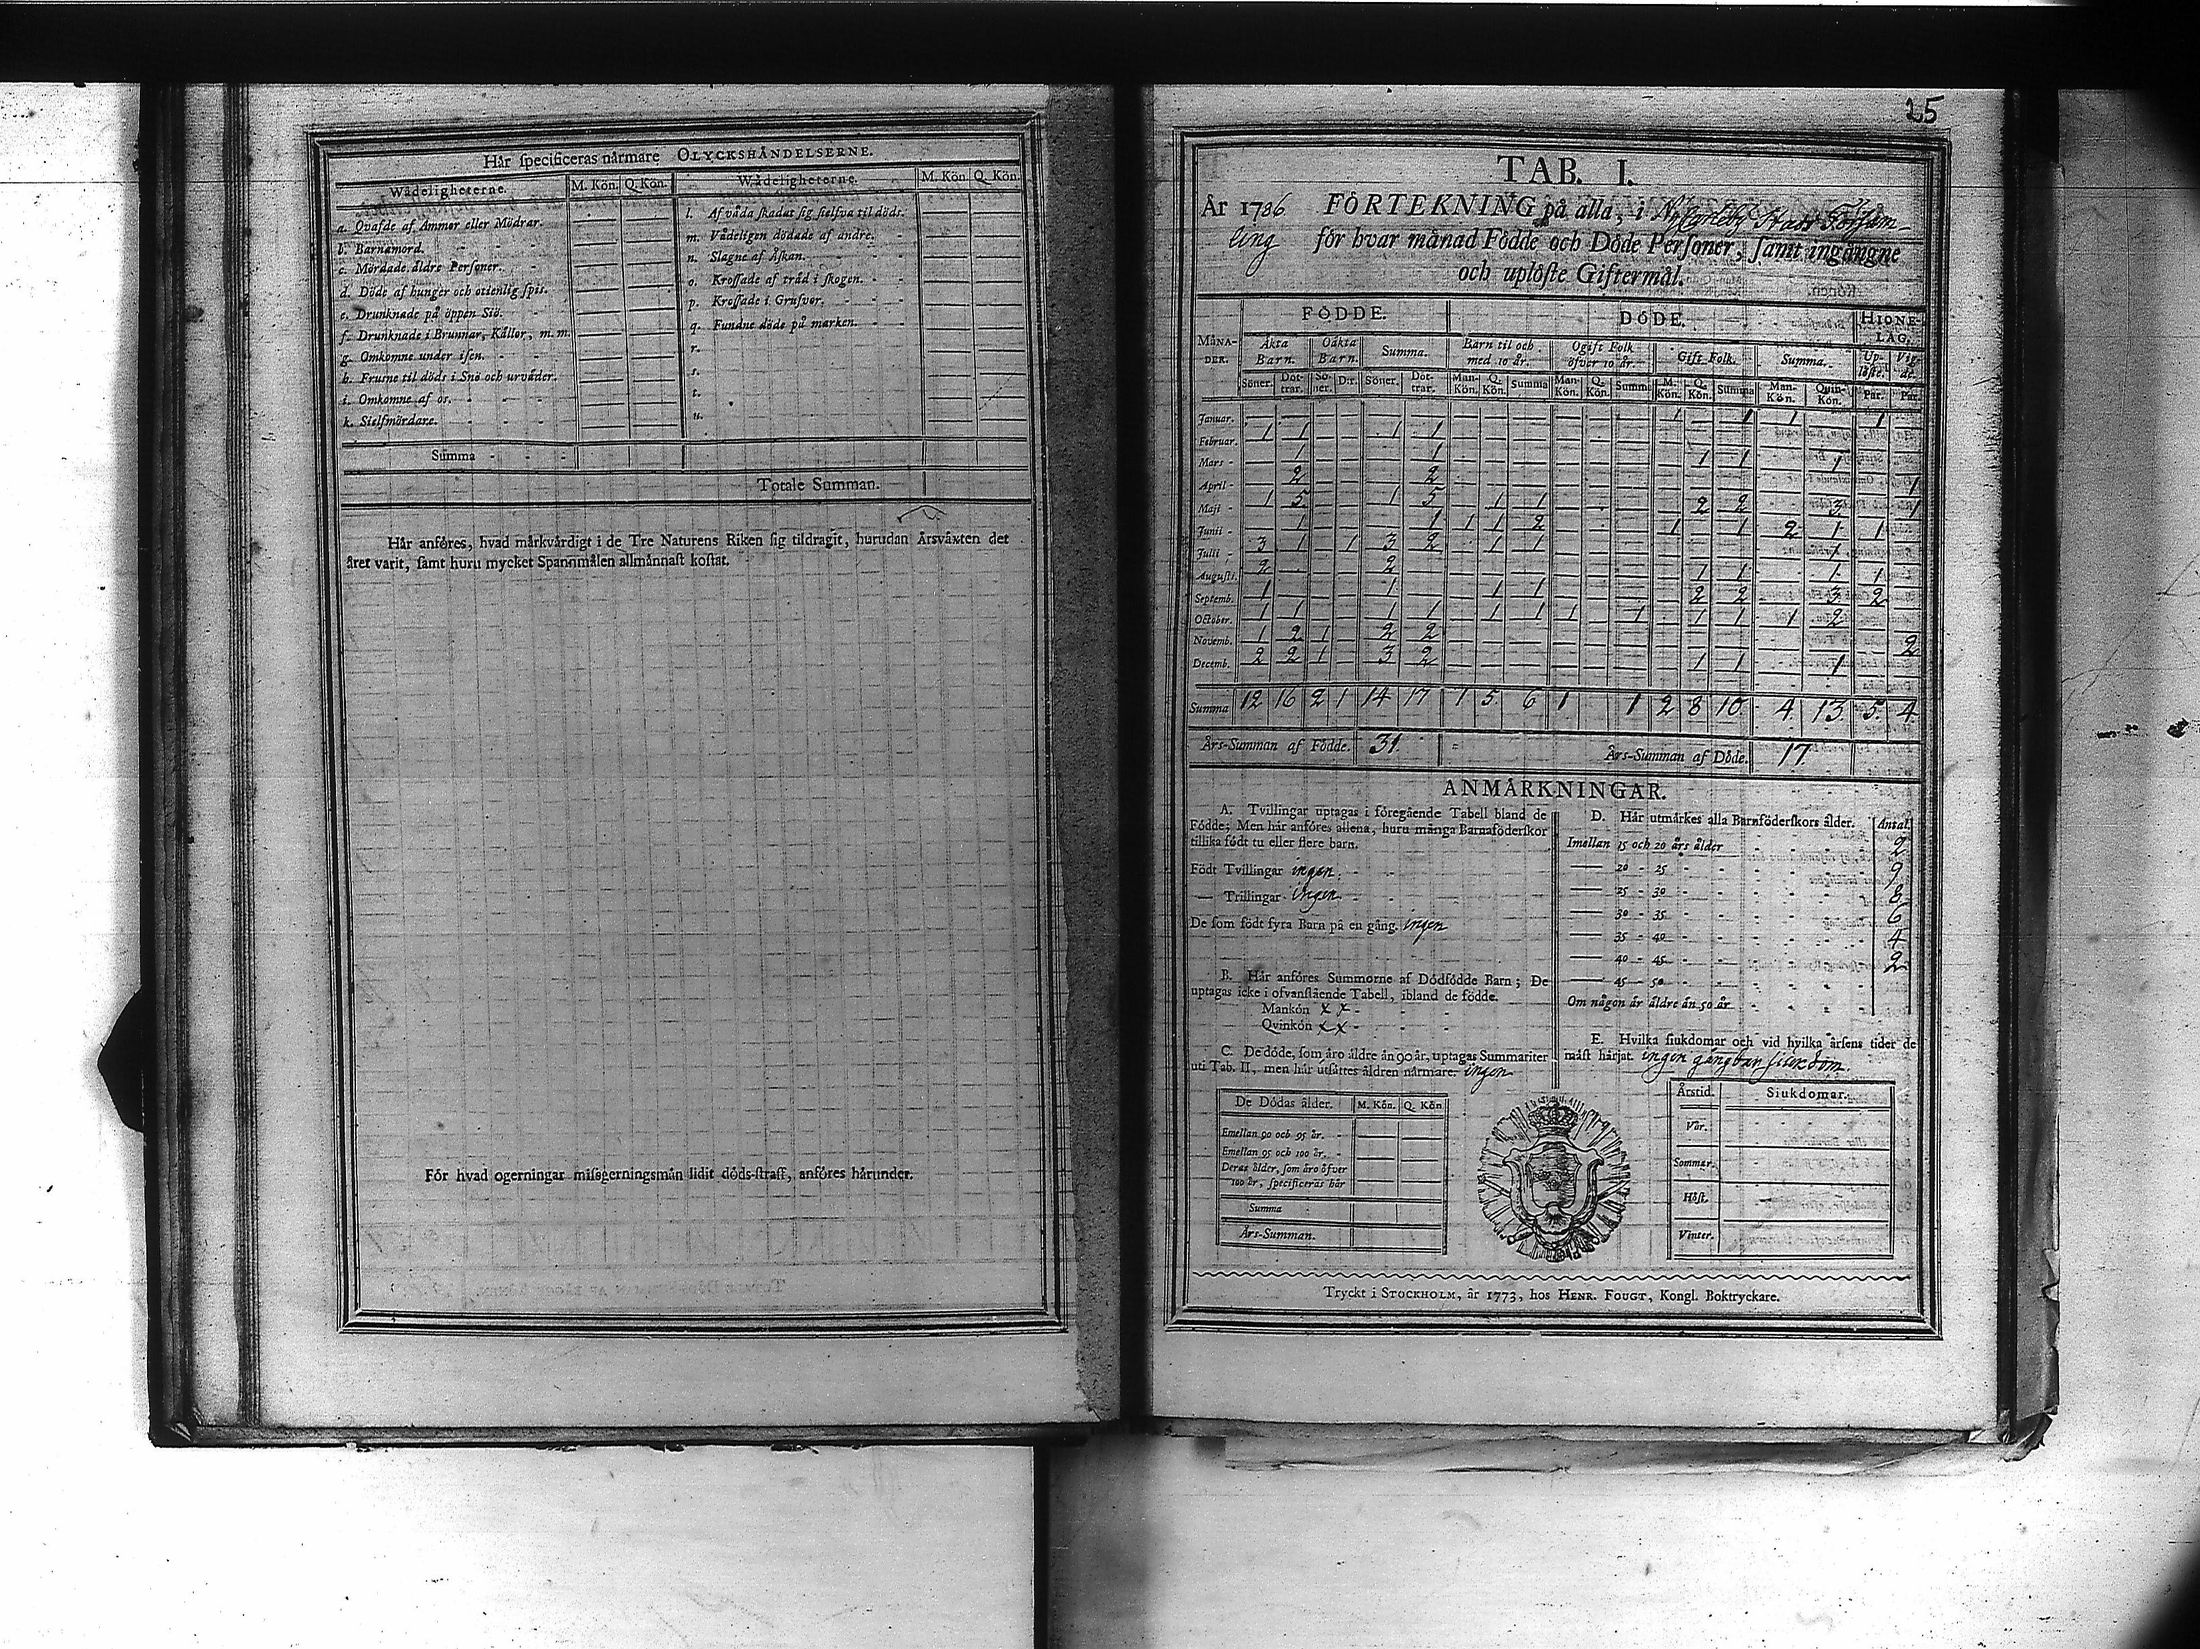 Här ſpecificeras närmare OLYCKSHÄNDELSERNE.
Wådeligheterne. M. Kön. Q. Kön. Wådeligheterne. M. Kön. Q. Kön.
a. Qvafde af Ammor eller Mödrar. — — l. Af våda ſkadat ſig ſielfva til döds. — —
b. Barnamord. — — m. Vådeligen dödade af andre. — —
c. Mördade äldre Perſoner. — — n. Slagne af Åſkan. — —
d. Döde af hunger och otienlig ſpis. — — o. Kroſſade af träd i ſkogen. — —
e. Drunknade på öppen Siö. — — p. Kroſſade i Grufvor. — —
f. Drunknade i Brunnar, Källor, m. m. — — q. Fundne döde på marken. — —
g. Omkomne under iſen. — — r. — —
h. Fruſne til döds i Snö och urväder. — — s. — —
i. Omkomne af os. — — t. — —
k. Sielfmördare. — — u. — —
Summa
Totale Summan.
Här anföres, hvad märkvärdigt i de Tre Naturens Riken ſig tildragit, hurudan Årsväxten det
året varit, ſamt huru mycket Spannmålen allmännaſt koſtat.
För hvad ogerningar miſsgerningsmän lidit döds-ſtraff, anföres härunder.
25
TAB. I.
År 1786 FÖRTEKNING på alla, i Nykarleby Stads Förſam-
ling för hvar månad Födde och Döde Perſoner, ſamt ingångne
och uplöſte Giftermål.
FÖDDE. DÖDE. HIONE-
LAG.
MÅNA-
DER. Äkta
Barn. Oäkta
Barn. Summa. Barn til och
med 10 år. Ogift Folk
öfver 10 år. Gift Folk. Summa. Up-
löſte. Vig-
de.
Söner. Döt-
trar. Sö-
ner. Dtr. Söner. Döt-
trar. Man-
Kön. Q.
Kön. Summa Man-
Kön. Q.
Kön. Summa M.
Kön. Q.
Kön. Summa Man-
Kön. Quin-
Kön. Par. Par.
Januar. — — — — — — — — — — — — 1 — 1 1 — 1 —
Februar. 1 1 — — 1 1 — — — — — — — — — — — — —
Mars — 1 — — — 1 — — — — — — — 1 1 — 1 — —
April — 2 — — — 2 — — — — — — — — — — — — 1
Maji 1 5 — — 1 5 — 1 1 — — — — 2 2 — 3 — 1
Junii — 1 — — — 1 1 1 2 — — — 1 — 1 2 1 1 —
Julii 3 1 — 1 3 2 — 1 1 — — — — — — — 1 — —
Auguſti. 2 — — — 2 — — — — — — — — 1 1 — 1 1 —
Septemb. 1 — — — 1 — — 1 1 — — — — 2 2 — 3 2 —
October. 1 1 — — 1 1 — 1 1 1 — 1 — 1 1 1 2 — —
Novemb. 1 2 1 — 2 2 — — — — — — — — — — — — 2
Decemb. 2 2 1 — 3 2 — — — — — — — 1 1 — 1 — —
Summa 12 16 2 1 14 17 1 5 6 1 1 2 8 10 4 13 5 4
Års-Summan af Födde. 31 Års-Summan af Döde. 17
ANMÄRKNINGAR.
A. Tvillingar uptagas i föregående Tabell bland de
Födde; Men här anföres allena, huru många Barnaföderſkor
tillika födt tu eller flere barn.
Födt Tvillingar ingen
— Trillingar ingen
De ſom födt fyra Barn på en gång. ingen
B. Här anföres Summorne af Dödfödde Barn; De
uptagas icke i ofvanſtående Tabell, ibland de födde.
Mankön x x
Qvinkön x x
C. De döde, ſom äro äldre än 90 år, uptagas Summariter
uti Tab. II, men här utſättes åldren närmare. ingen
De Dödas ålder. M. Kön. Q. Kön
Emellan 90 och 95 år. — —
Emellan 95 och 100 år. — —
Deras ålder, ſom äro öfver
100 år, ſpecificeras här — —
Summa
Års-Summan.
D. Här utmärkes alla Barnföderſkors ålder. Antal.
Imellan 15 och 20 års ålder 2
— 20 - 25 9
— 25 - 30 8
— 30 - 35 6
— 35 - 40 4
— 40 - 45 2
— 45 - 50
Om någon är äldre än 50 år
E. Hvilka ſiukdomar och vid hvilka årſens tider de
mäſt härjat. ingen gångbar ſiukdom.
Årstid. Siukdomar.
Vår.
Sommar.
Höſt.
Vinter.
Tryckt i STOCKHOLM, år 1773, hos HENR. FOUGT, Kongl. Boktryckare.